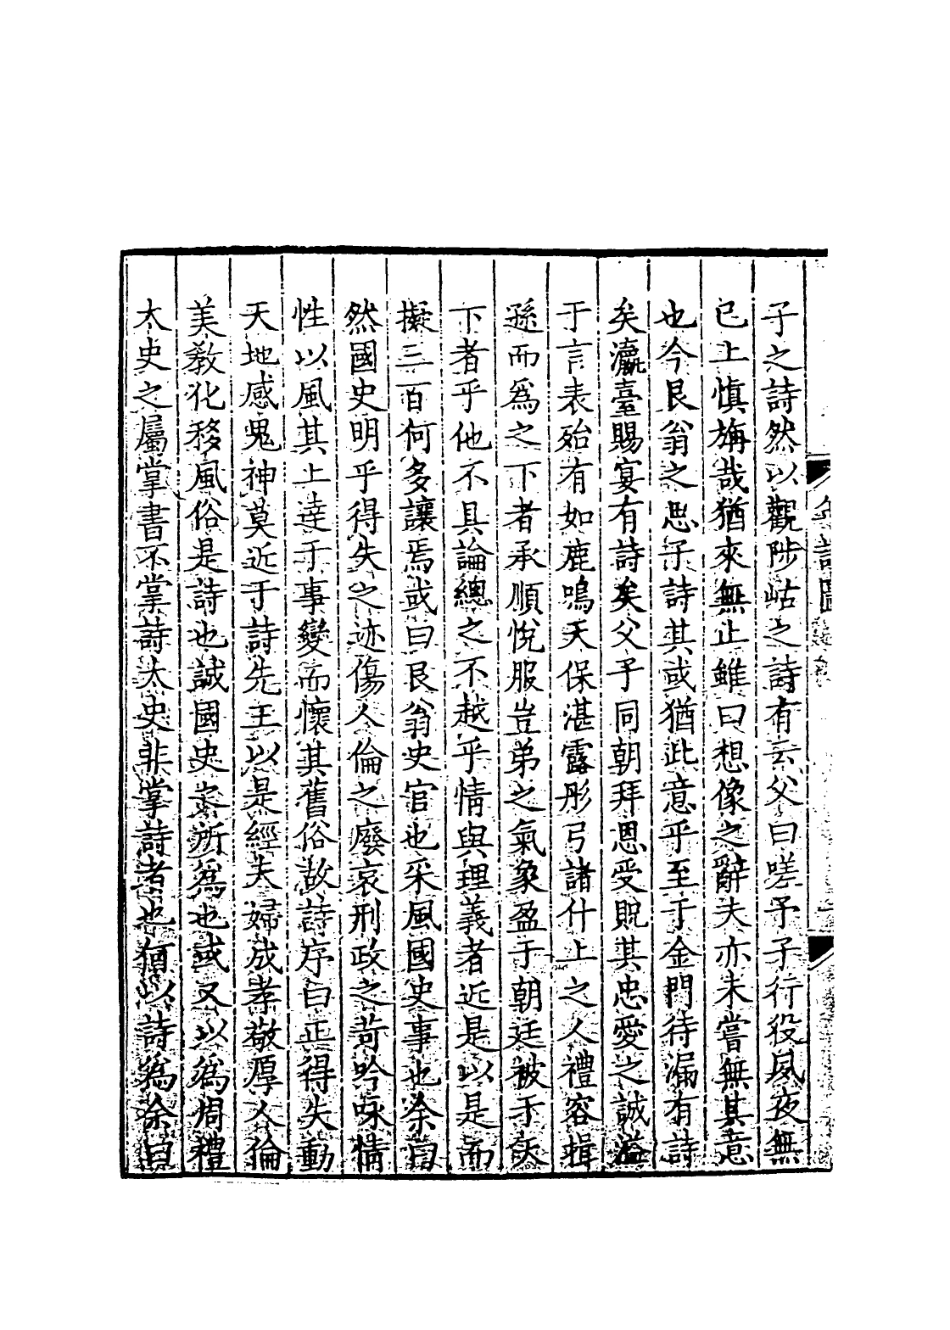 子之詩然以觀陟岵之詩有云父曰嗟予子行役夙夜無
已上慎旃哉猶來無止雖曰想像之辭夫亦未嘗無其意
也今艮翁之思子詩其或猶此意乎至于金門待漏有詩
矣瀛臺賜宴有詩矣父子同朝拜恩受貺其忠愛之誠溢
于言表殆有如鹿鳴天保湛露彤弓諸什上之人禮容揖
遜而爲之下者承順悅服豈弟之氣象盈于朝廷被于
下者乎他不具論總之不越乎情與理義者近是以是而
擬三百何多讓焉或曰艮翁史官也采風國史事也余曰
然國史明乎得失之迹傷人倫之廢哀刑政之苛吟咏情
性以風其上達于事變而懷其舊俗故詩序曰正得失動
天地感鬼神莫近于詩先王以是經夫婦成孝敬厚人倫
美教化移風俗是詩也誠國史之所爲也或又以爲周禮
太史之屬掌書不掌詩太史非掌詩者也猶以詩爲余曰